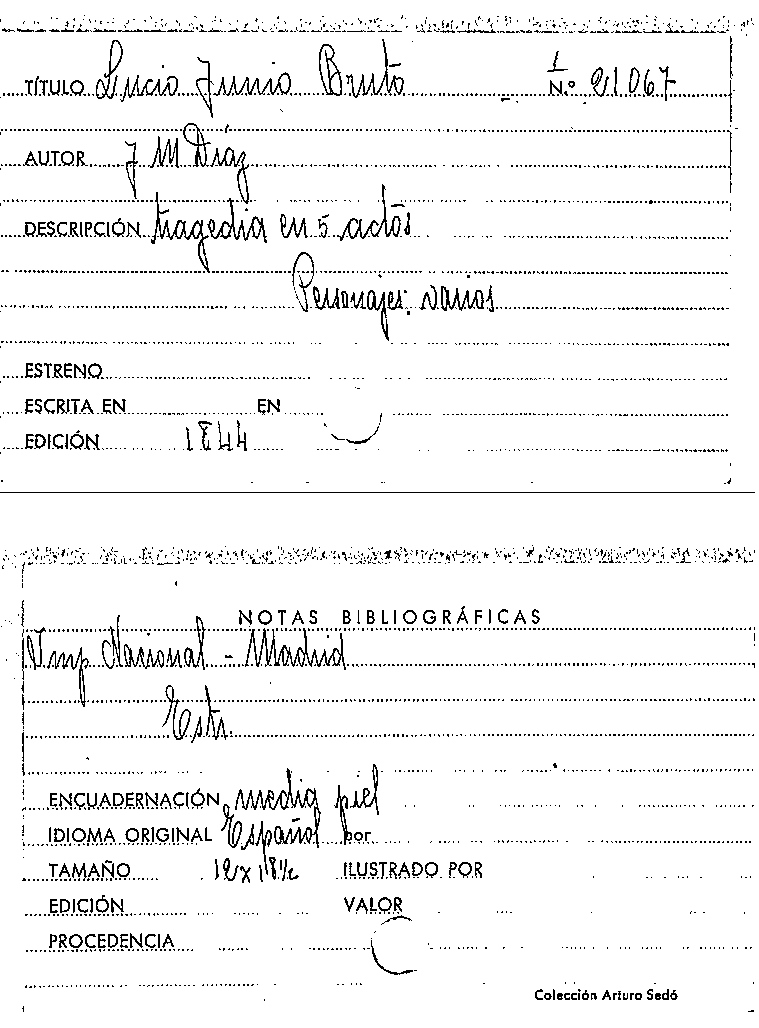 TÍTULO Lucio Junio Bruto 1
N.º 21067
AUTOR J M Díaz
DESCRIPCIÓN tragedia en 5 actos
Personajes: varios
ESTRENO
ESCRITA EN EN
EDICIÓN 1844
NOTAS BIBLIOGRÁFICAS
Imp Nacional - Madrid
Estr.
ENCUADERNACIÓN media piel
IDIOMA ORIGINAL Español por
TAMAÑO 12 x 18½ ILUSTRADO POR
EDICIÓN VALOR
PROCEDENCIA
Colección Arturo Sedó